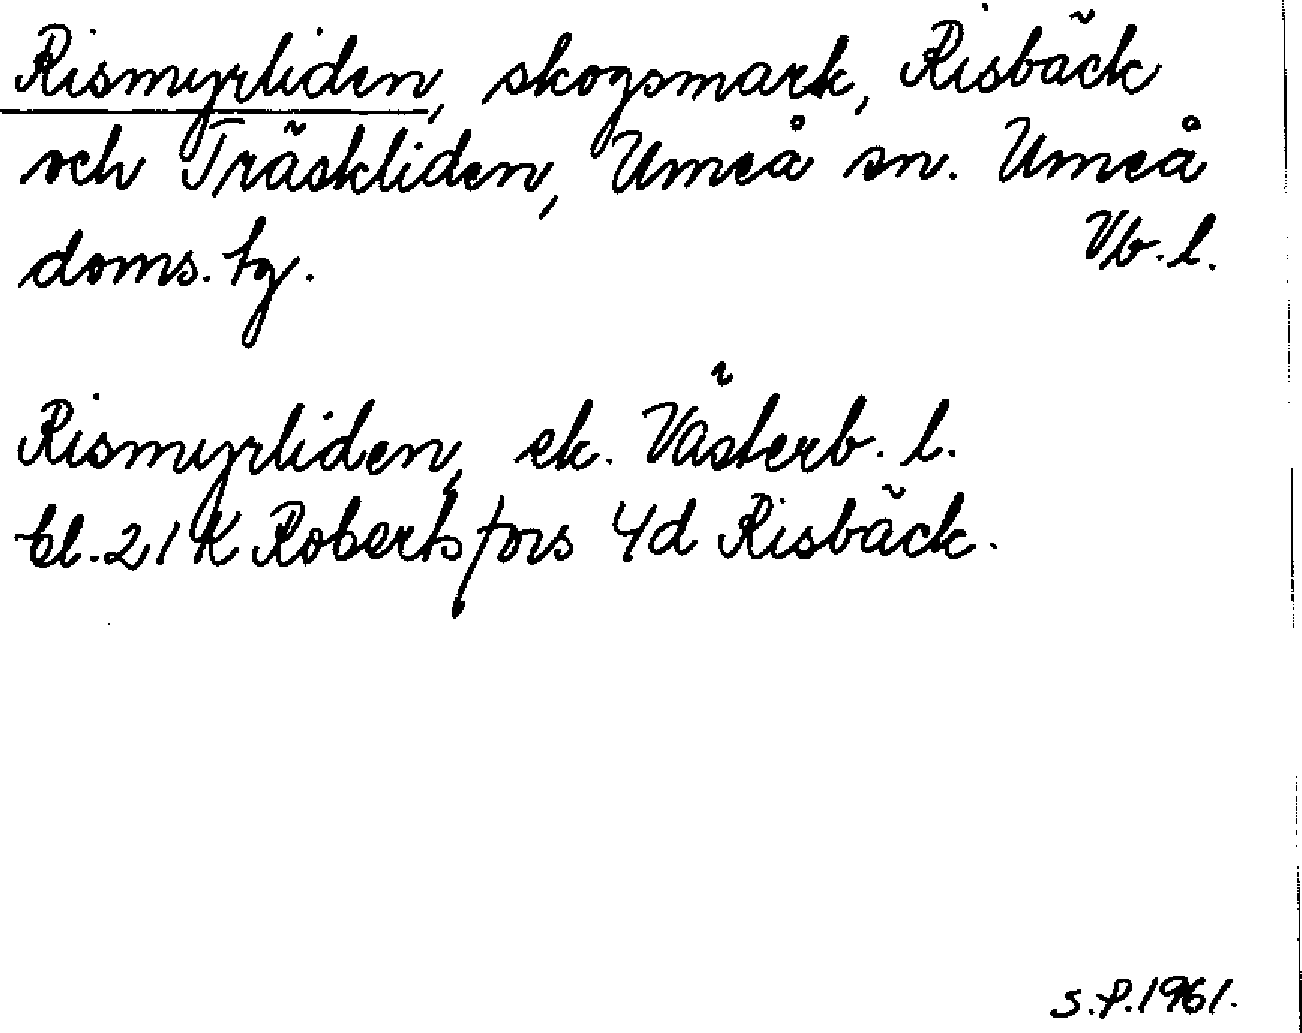 Rismyrliden, skogsmark, Risbäck
och Träskliden, Umeå sn. Umeå
doms. tg. Vb. l.
Rismyrliden, ek. Västerb. l.
bl. 21 K Robertsfors 4d Risbäck.
S.P. 1961.